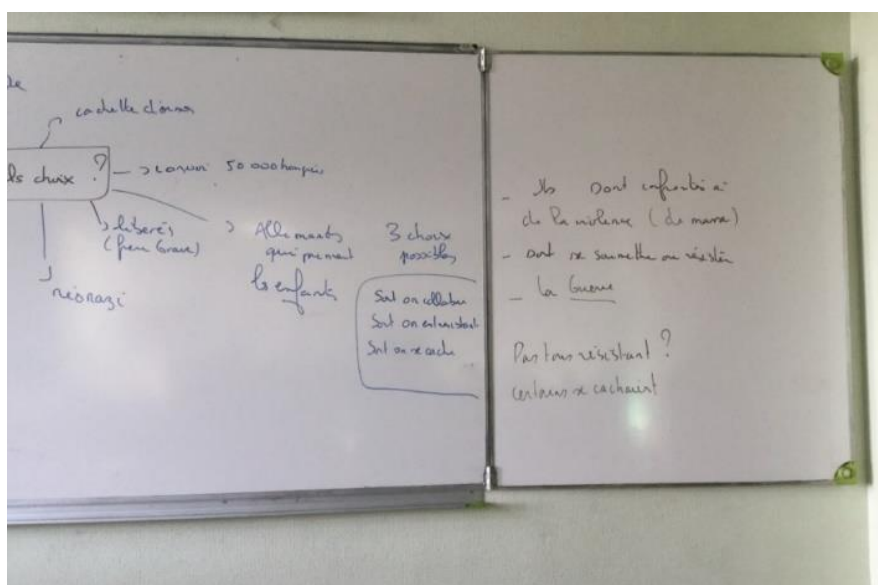 de
cachette d'armes
ls choix ?
→ convoi 50 000 hongrois
→ libérés
(frère Grave)
→ Allemands
qui prennent
les enfants
néonazi
3 choix
possibles
Soit on collabore
Soit on est résistant
Soit on se cache
- Ils sont confrontés à
de la violence (de masse)
- soit se soumettre ou résister
- la Guerre
Pas tous résistant ?
certains se cachaient